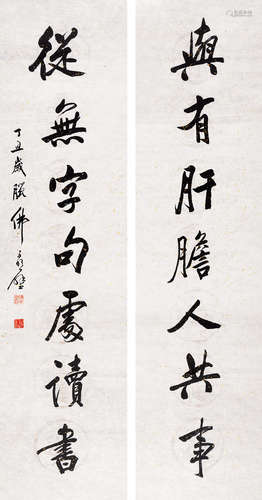 與有肝膽人共事
從無字句處讀書
丁丑歲朘佛